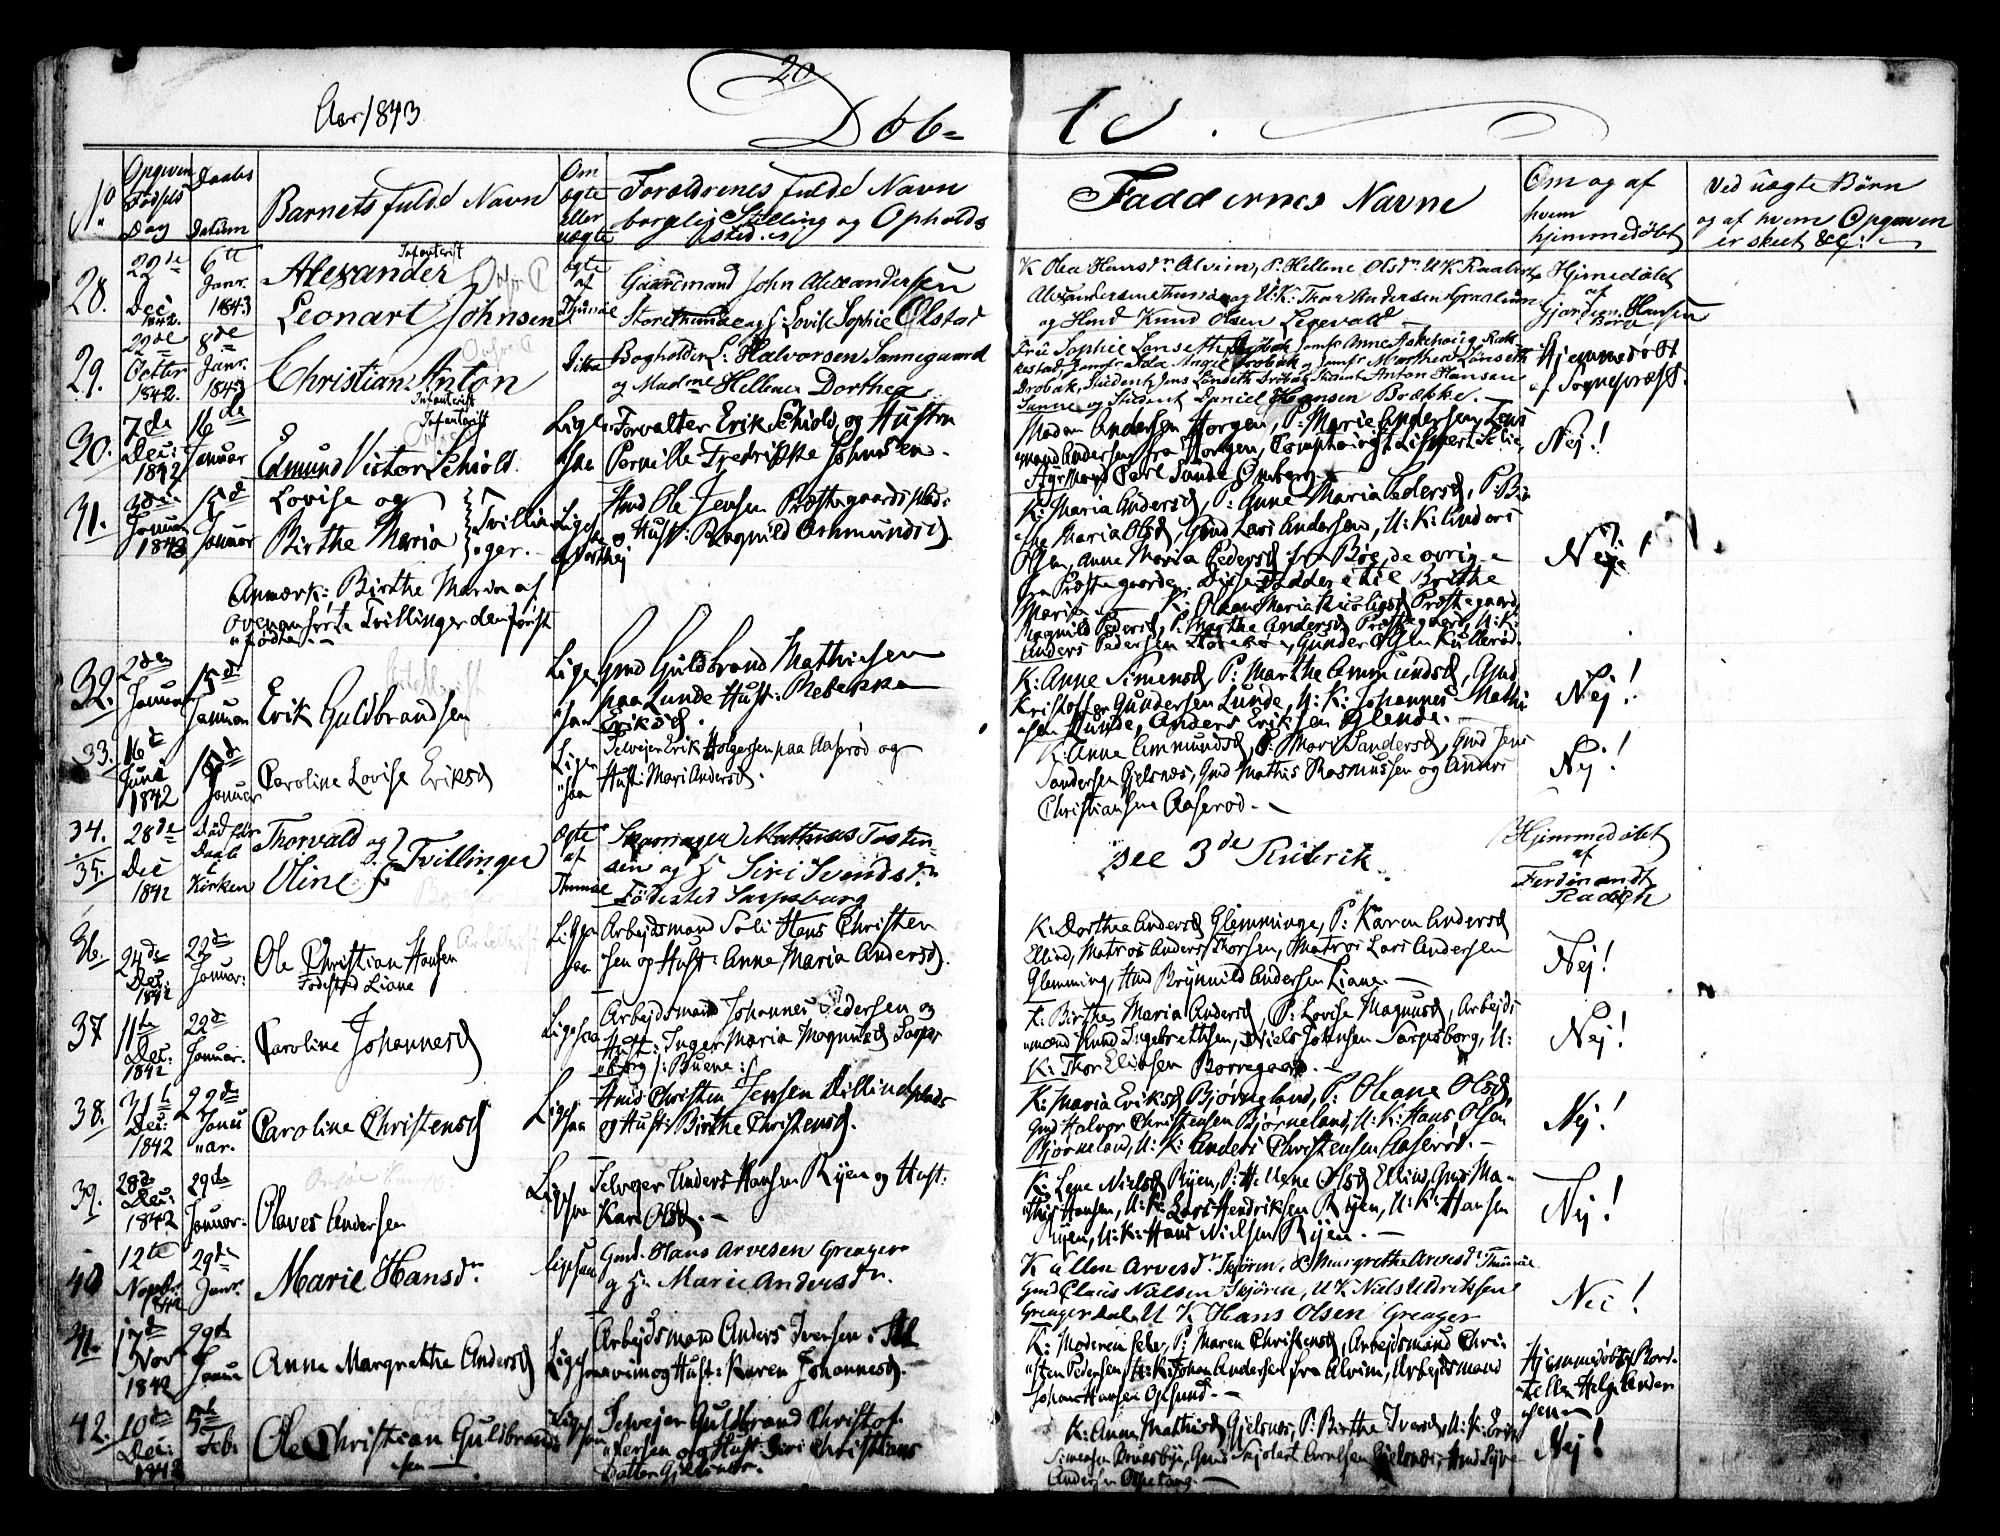 20
Aar 1843
Døb= te.
No.
Opgiven Fødsels Dag
Daabs Datum
Barnets fulde Navn
Om ægte eller uægte
Forældrenes fulde Navn
borgelig Stilling og Opholds
sted.
Faddernes Navne
Om og af
hvem
hjemmedøbt
Ved uægte Børn
og af hvem Opgaven
er skeet &c:
28.
22de
Dec
1842.
6te
Janr.
1843
Alexander
Leonart Johnsen
ægte
af
Gaardmand John Alexandersen
Storethune og H: Lovise Sophie Olstad
K Olea Hansdr Alvim, P. Hellene Olsdr U K
og U: K: Thor Andersen Graalum
og Hmd Knud Olsen
Hjemedøbt
af
Gjordem. Hansen
Borg
29.
22de
Octbr
1842.
8de
Janr.
1843
Christian Anton
Ditto
Bogholder L: Halvorsen Sannegaard
og Madme Hellene Dorthea
Frue Sophie Lonseth Drøbak Jomfr Anne
Drobak, Student Jens Lonseth Drøbak Student Anton Hansen
Sanne og Student Daniel Hansen Brække.
Hjemmedøbt
af Sognepræst.
30.
7de
Dec:
1842
16de
Januar
Edmund Victor Schiold.
Lige-
saa
Forvalter Erik Schiold, og Hustru
Pernille Fredrikke Johnsen.
Madm Andersen Horgen, P: Marie Andersen, Lens
mand Andersen fra Horgen,
Nej!
31.
3die
Januar
1843
15d
Januar
Lovise og
Birthe Maria
Tvillin
ger.
Ligesaa
Hmd Ole Jensen Præstegaardsplads
og Hust: Ragnild Ammundsd.
K: Maria Andersd, P: Anne Maria Pedersd, P: Bir
the Maria Olsd, Gmd Lars Andersen, U: K: Anders
Olsen, Anne Maria Pedersd fra Bøe, de øvrige
fra Præstegaarden. Disse Faddere til Birthe
Maria.
Magnild Pedersd, P: Marthe Andersd Præstegaard, U: K:
Anders Pedersen Gunder Olsen Kullerød.
Nej!
Anmærk: Birthe Maria af
ovenanførte Tvillinger den først
fødte.
32.
2den
Januar
15d
Januar
Erik Guldbrandsen
Lige
saa
Gmd Guldbrand Mathisen
paa Lunde Hust: Rebekka
Eriksd.
K: Anne Simensd, P: Marthe Ammundsd, Gmd
Kristoffer Gundersen Lunde, U: K: Johannes Mathi
sen Lunde, Anders Eriksen Glende.
Nej!
33.
16d
Juni
1842
15de
Januar
Caroline Lovise Eriksd
Lige
saa
Selvejer Erik Holgersen paa Aaserød og
Hust: Mari Andersd.
K: Anne Ammundsd, P: Mari Sandersd, Gmd Jens
Sandersen Gjelsnæs, Gmd Mathis Rasmussen og Anders
Christiansen Aaserød.
Nej!
34.
35.
28de
Dec
1842
Død før
Daab
i
Kirken
Thorvald og
Oline
Tvillinger
Ægte
af
Thunæ
Skomager Mathias Tosten
sen og H Siri Svendsdr
Fødested Sarpsborg
See 3de Rubrik
Hjemmedøbt
af
Ferdinandt
36.
24de
Dec.
1842
22de
Januar.
Ole Christian Hansen
Fødested Liane
Lige
saa
Arbejdsmand Soli Hans Christen
sen og Hust: Anne Maria Andersd.
K: Dorthea Andersd Glemminge, P: Karen Andersd
Ellind, Matros Anders Thorsen, Matros Lars Andersen
Glemming, Hmd Brynnild Andersen Liane.
Nej!
37
11te
Dec:
1842
22de
Januar.
Caroline Johannesd
Ligesaa
Arbejdsmand Johannes Pedersen og
Hust: Inger Maria Magnilsd Sarps
borg Buene
K: Birthe Maria Andersd, P: Lovise Magnusd, Arbejds
mænd Knud Ingebrethsen, Niels Johnsen Sarpsborg, U:
K: Thor Eliasen Borregaard.
Nej!
38.
31te
Dec:
1842
22de
Janu
ar.
Caroline Christensd
Ligesaa
Hmd Christen Jensen Lillindplads
og Hust: Birthe Christensd.
K: Maria Eriksd Bjørneland, P: Oleane Olsd
Gmd Halvor Christensen Bjørneland, U: K: Hans Olsen
Bjørneland, U: K: Anders Christensen Aaserød.
Nej!
39.
28de
Dec:
1842
29de
Januar.
Olaves Andersen
Ligesaa
Selvejer Anders Hansen Ryen og Hust:
Kari Olsd.
K: Lene Nielsd Ryen, P: Hellene Olsd Ellind, Gmd Ma-
this Hansen, U: K: Lars Hendriksen Ryen, U: K: Hansen
Ryen, U: K: Hans Nielsen Ryen.
Nej!
40
12te
Novbr.
1842
29de
Janr.
Marie Hansdr
Ligesaa
Gmd. Hans Arvesen Greager
og H: Marie Andersdr.
K Ellen Arvesdr Skjøren, P Margrethe Arvesdr Thunæ
Gmd Claus Nilsen Skjøren, U K Niels Uldriksen
Greagerdal, U K Hans Olsen Greager
Nei!
41.
17de
Nov
1842
29de
Janua
Anne Margrethe Andersd
Ligesaa
Arbejdsmand Anders Iversen i Al
vim og Hust: Karen Johannesd.
K: Moderen selv, P: Maren Christensd, Arbejdsmænd Chri-
sten Pedersen, U: K: Johan Andersen fra Alvim, Arbejdsmand
Johan Hansen Opsund.
Hjemmedøbt Bord-
tellen Helge Ander
sen
42.
10de
Dec:
1842
5te
Feb:
Ole Christian Guldbrand
sen
Ligesaa
Selvejer Guldbrand Christof-
fersen og Hust: Siri Christians
datter
K: Anne Mathisd Gjelsnæs, P: Birthe Iversd, U: K: Erik
Simensen
Andersen
Nej!